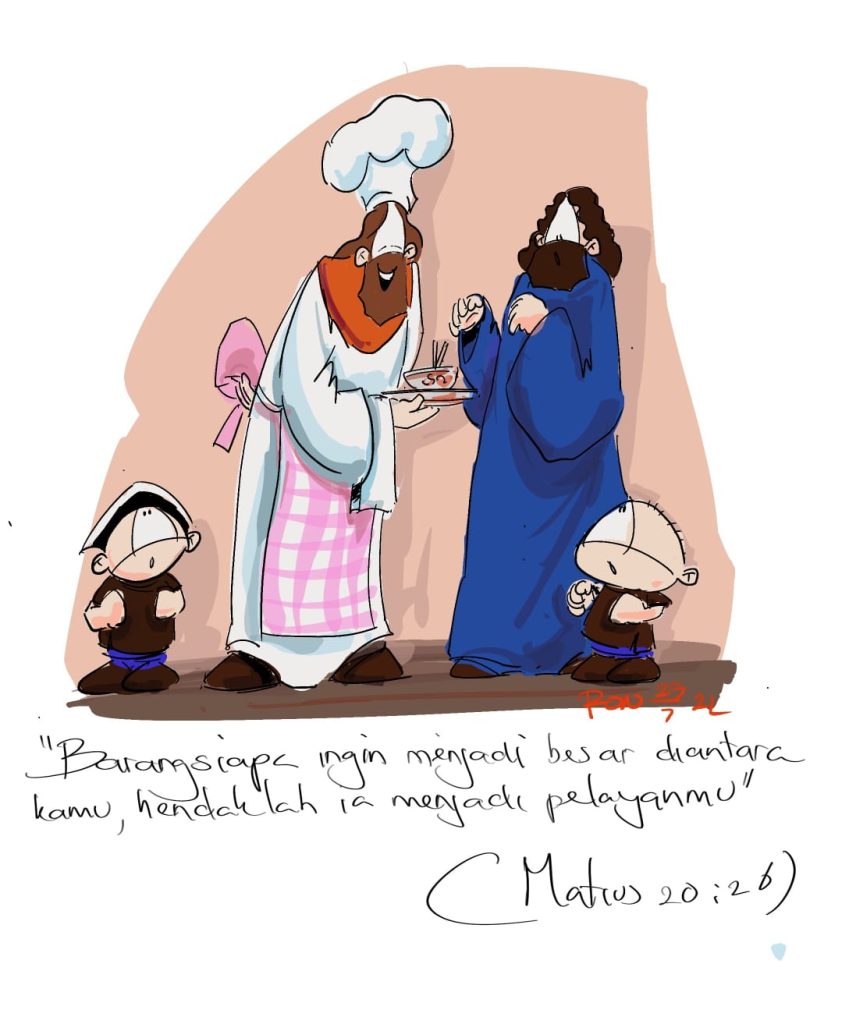 RON 29/7 22
"Barangsiapa ingin menjadi besar diantara
kamu, hendaklah ia menjadi pelayanmu"
(Matius 20:26)